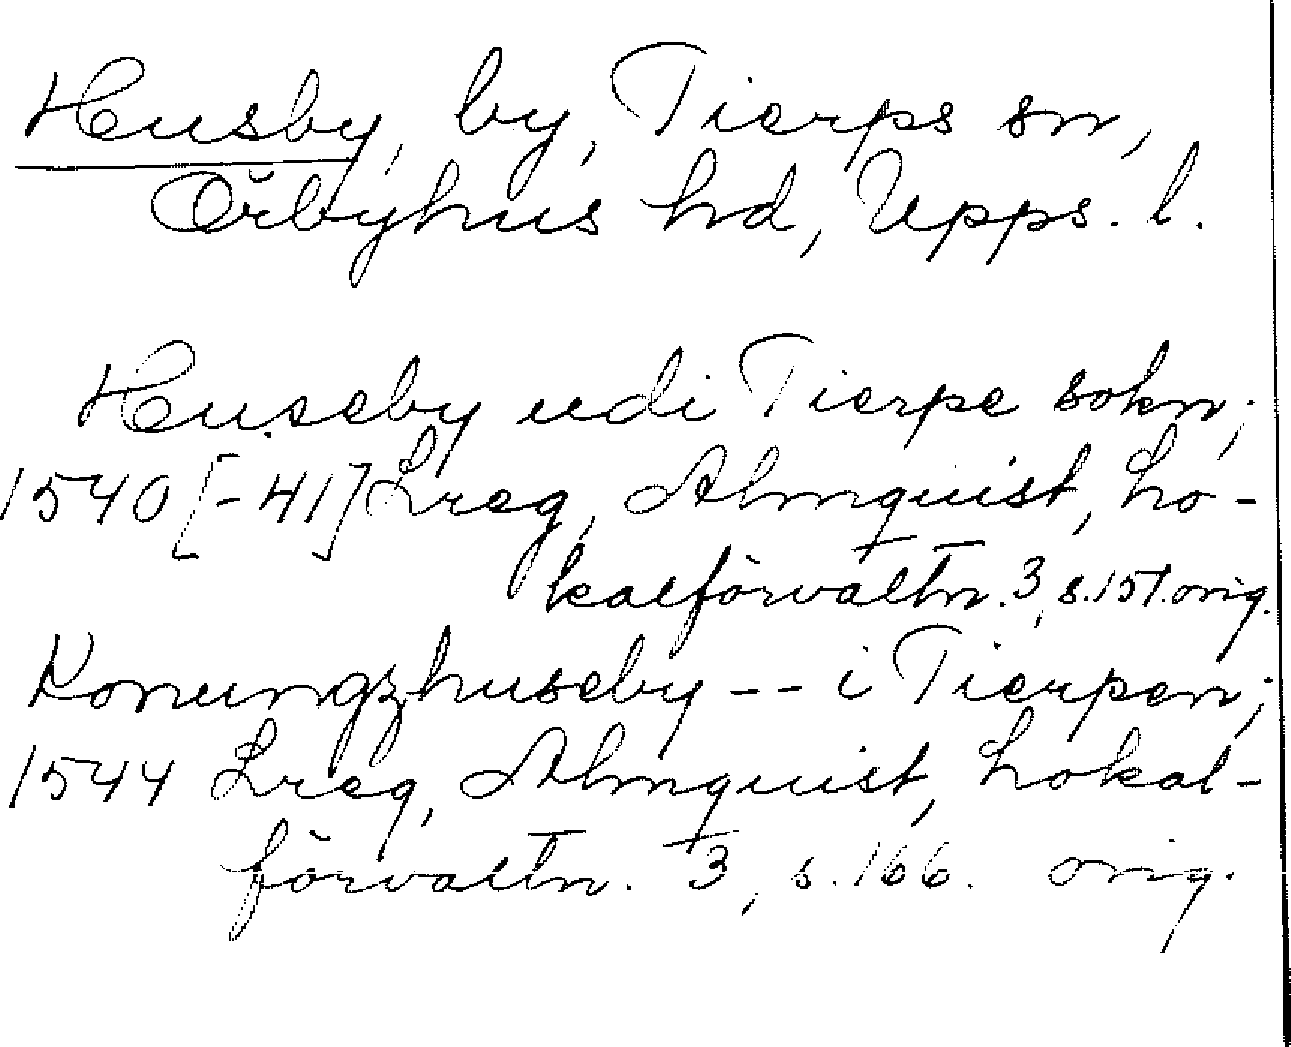 Husby, by, Tierps sn,
Örbyhus hd, Upps. l.
Huseby udi Tierpe sokn;
1540 [-41] Lreg, Almquist, Lo-
kalförvaltn. 3, s. 157. orig.
Konungzhuseby -- i Tierpen;
1544 Lreg, Almquist, Lokal-
förvaltn. 3, s. 166. orig.